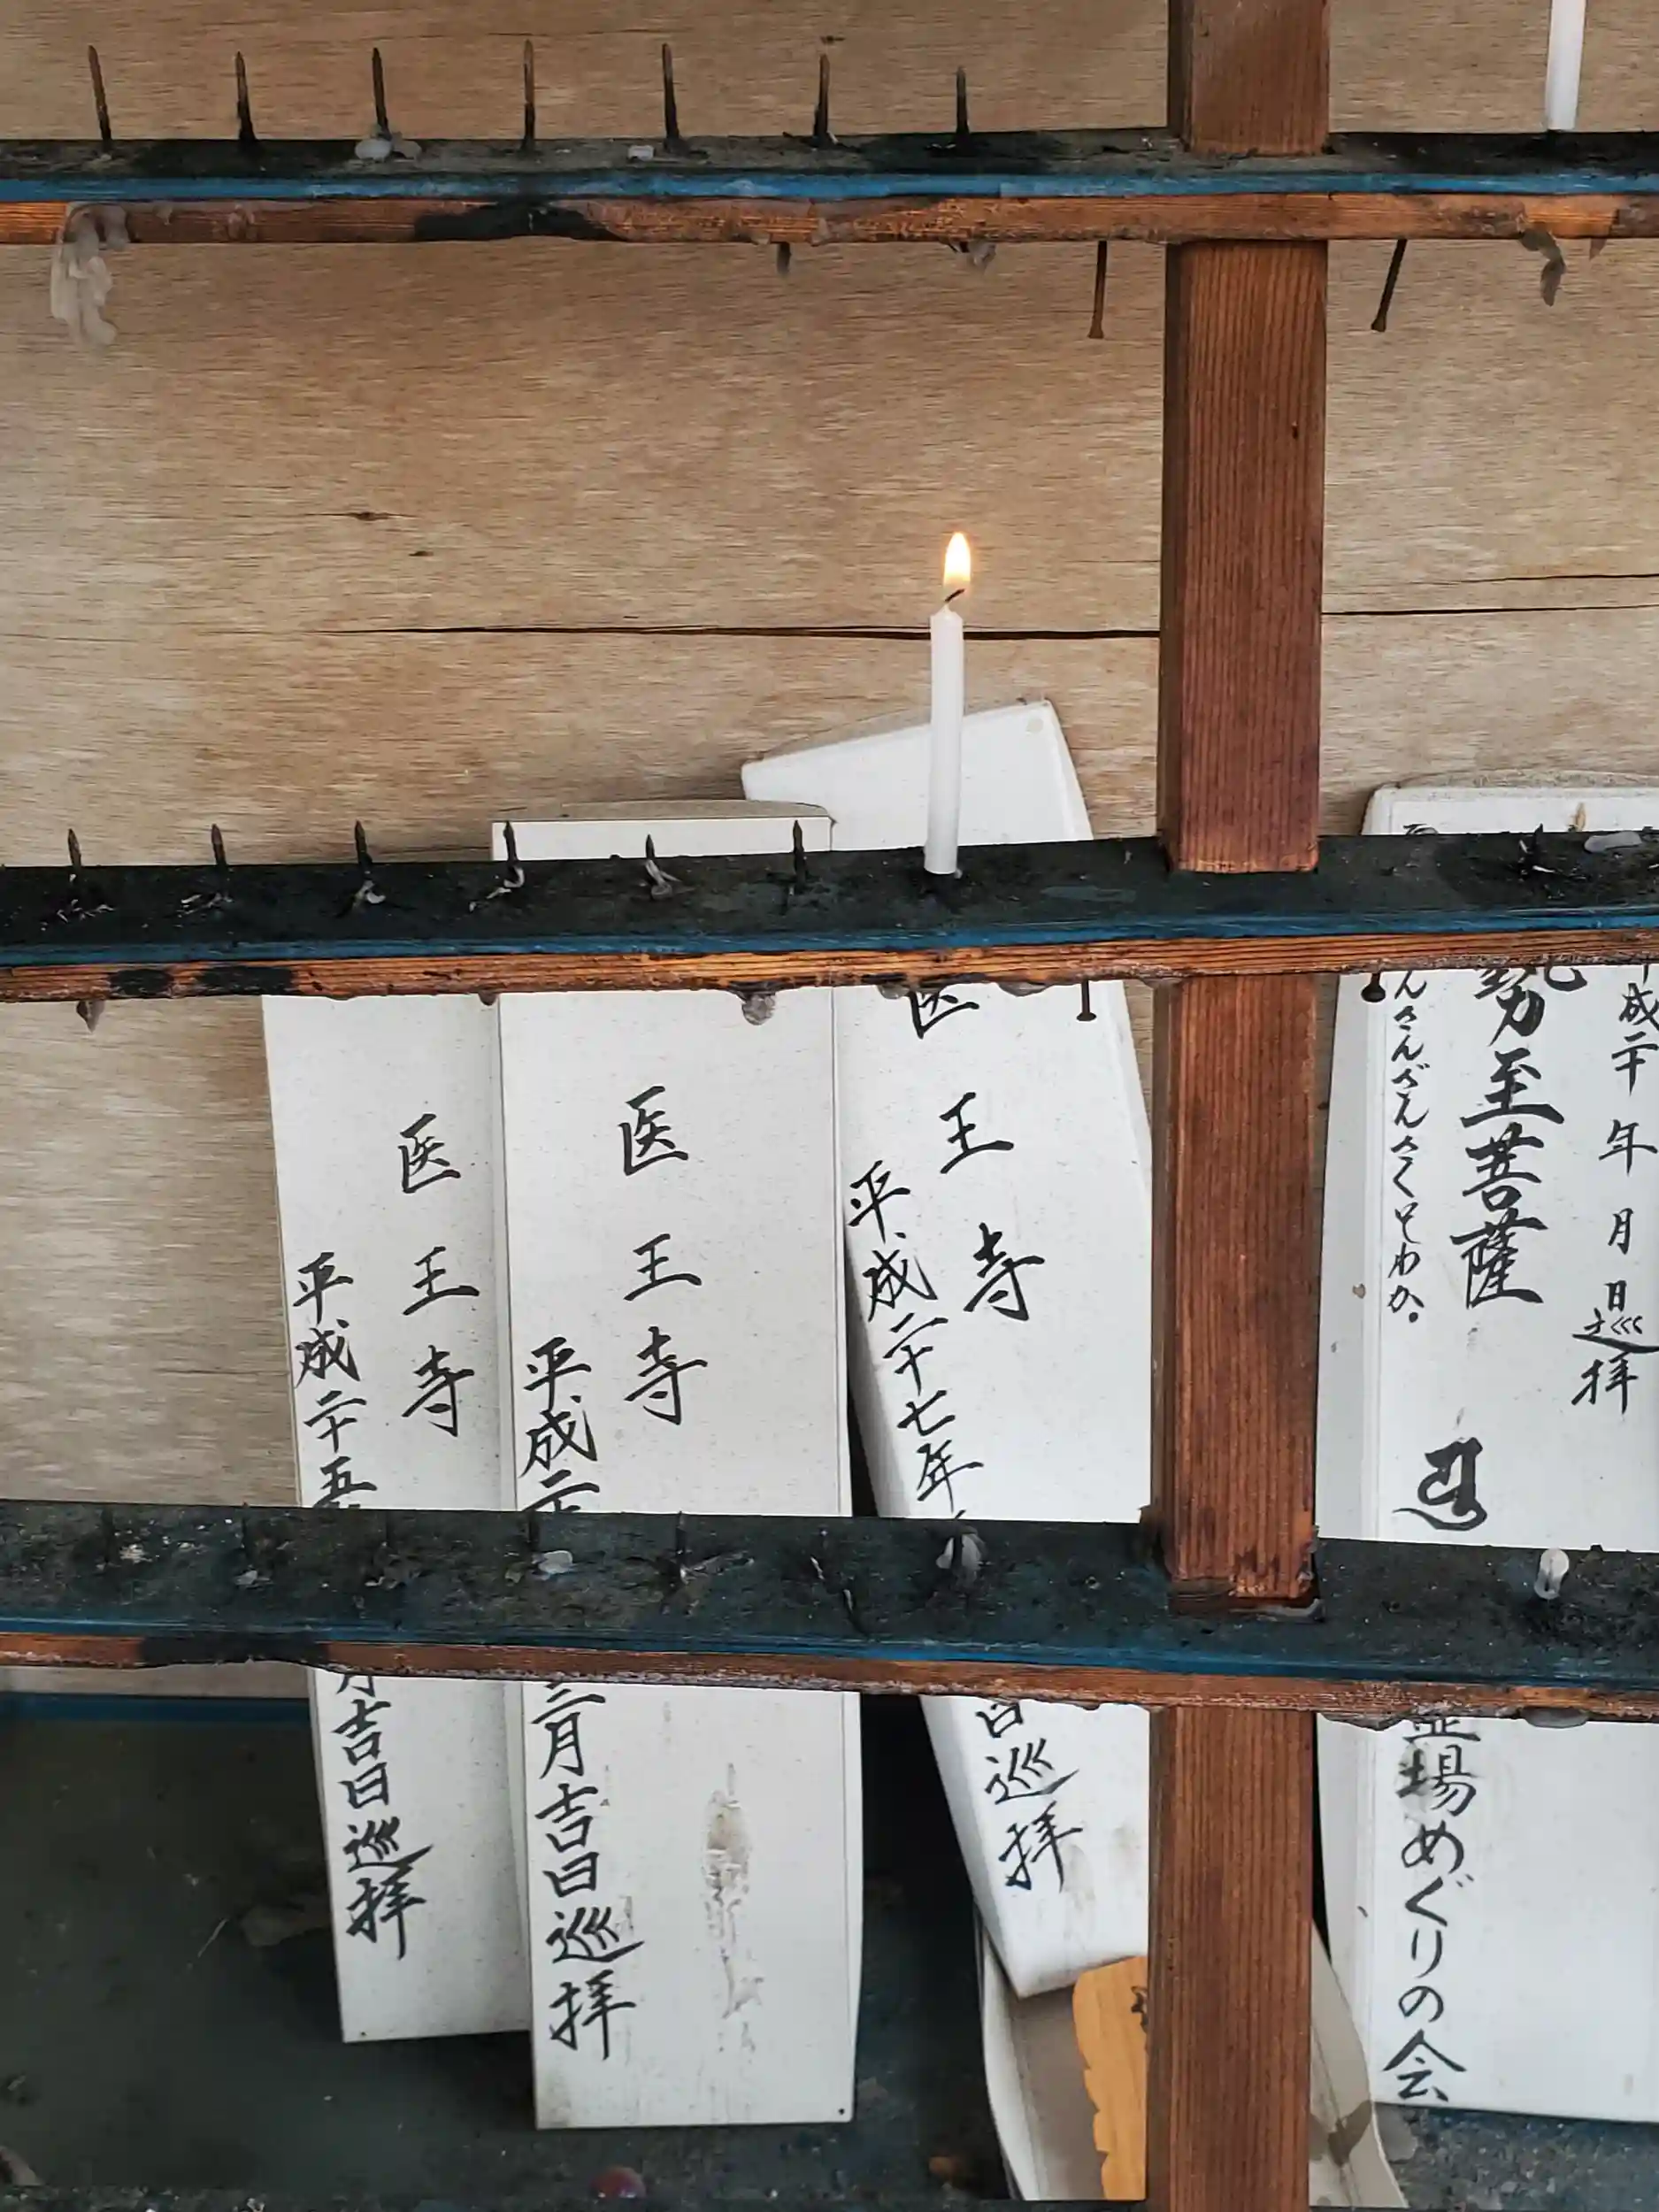 平成二十年月日巡拝
勢至菩薩
んさんざんさくそわか。
霊場めぐりの会
医王寺
平成二十七年
日巡拝
医王寺
平成二
三月吉日巡拝
医王寺
平成二十五
月吉日巡拝